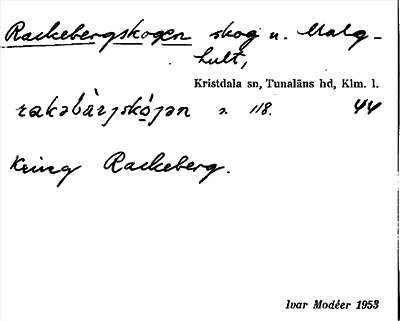 Rackebergskogen skog u. Malg-
hult,
Kristdala sn, Tunaläns hd, Klm. l.
rakəbàrjskó̱jən s. 118. 44
Kring Rackeberg.
Ivar Modéer 1953